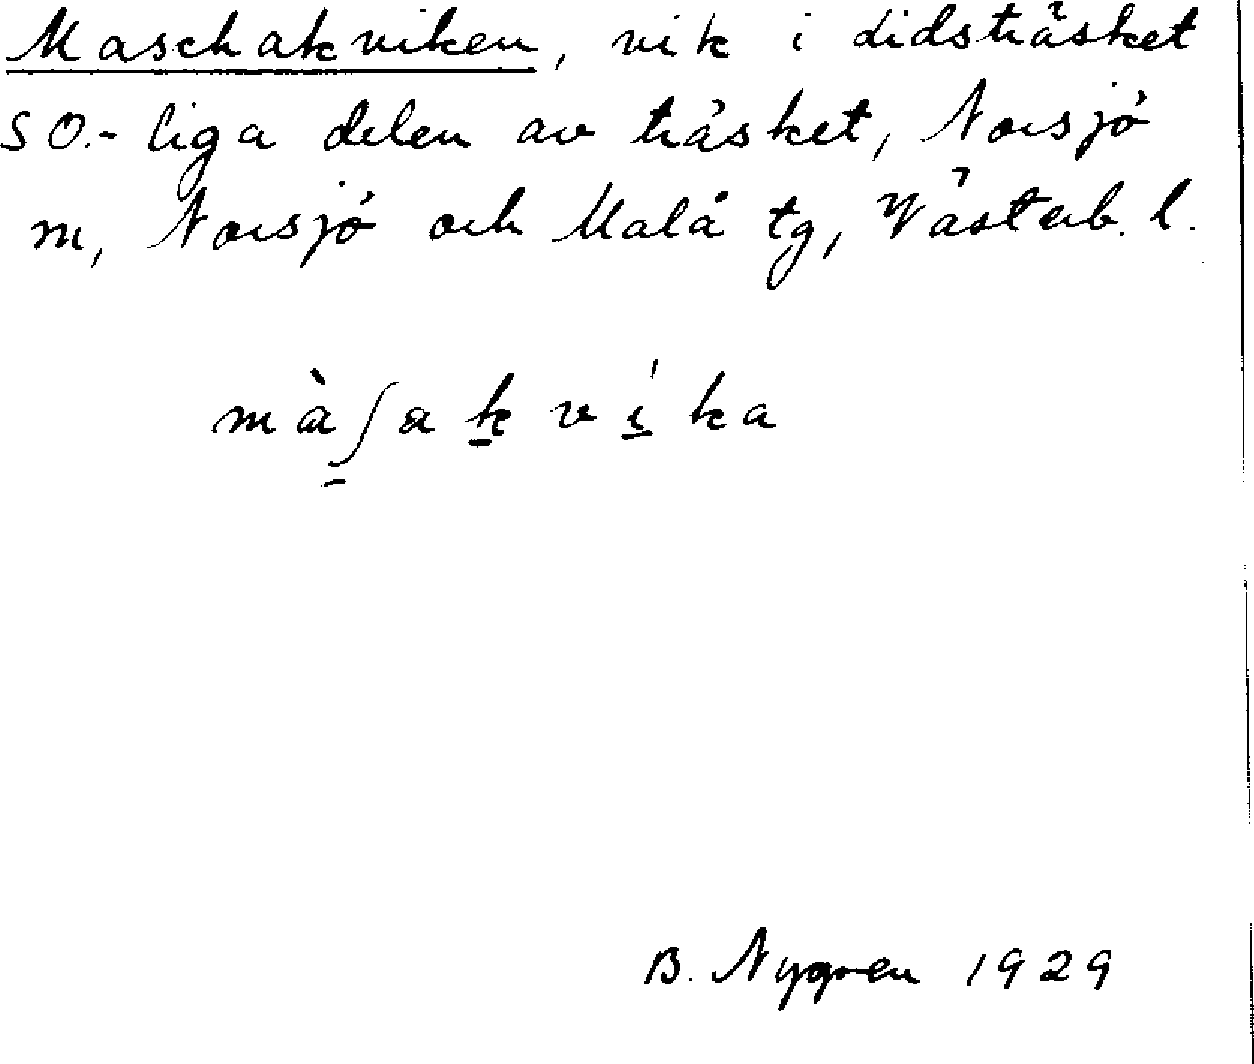 Maschakviken, vik i Lidsträsket
SO.-liga delen av träsket, Norsjö
m, Norsjö och Malå tg, Västerb. l.
màʃakvíka
B. Nygren 1929